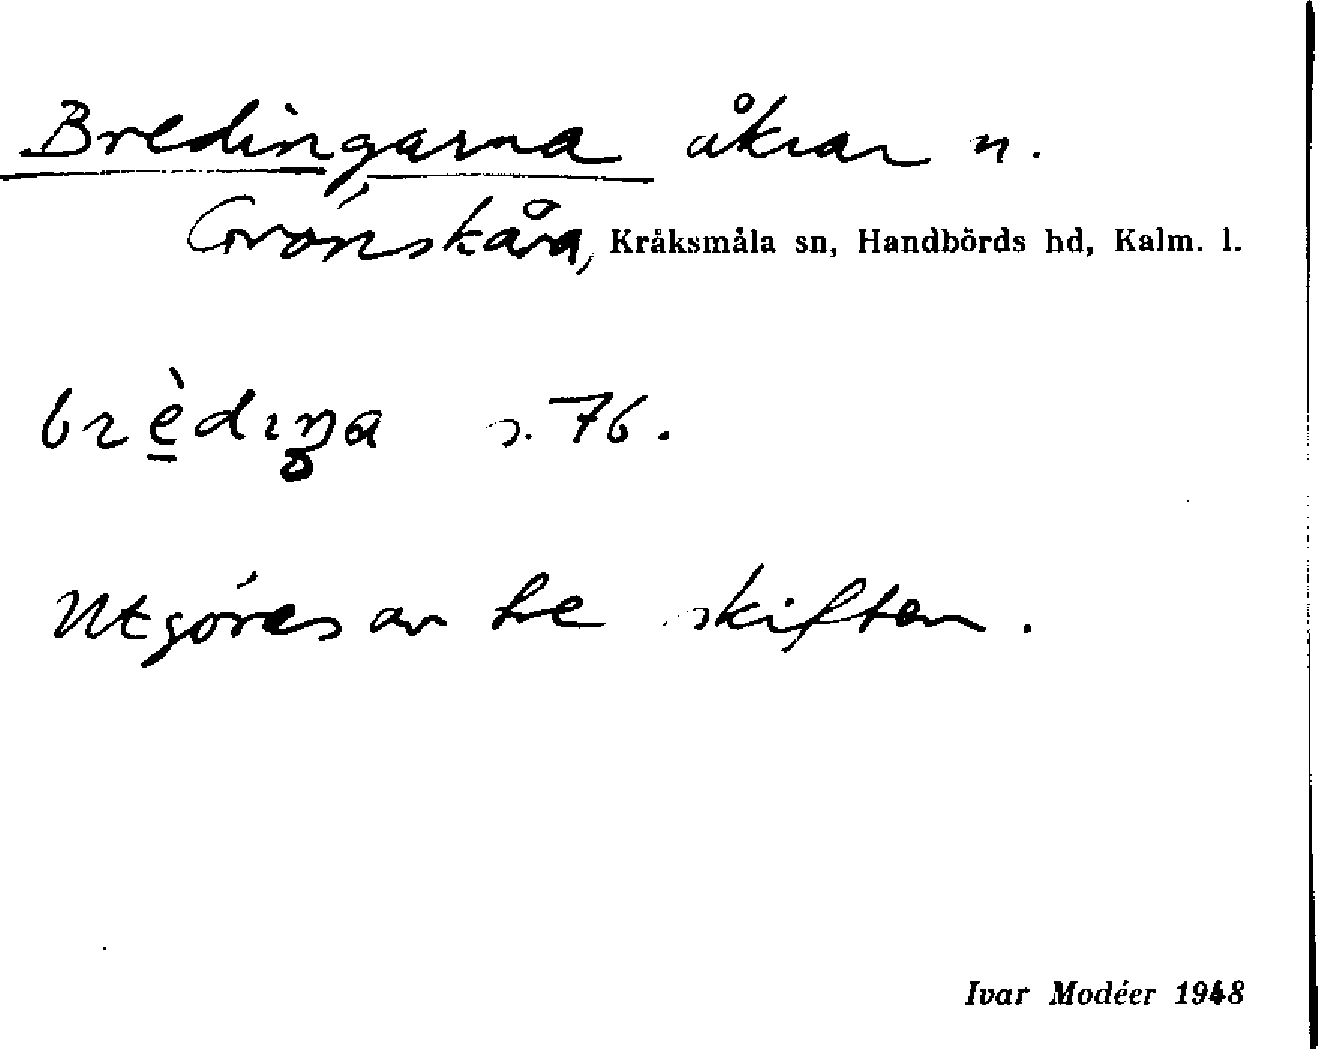 Bredingarna åkrar n.
Grönskåra, Kråksmåla sn, Handbörds hd, Kalm. l.
s. 76.
Utgöres av tre skiften.
Ivar Modéer 1948